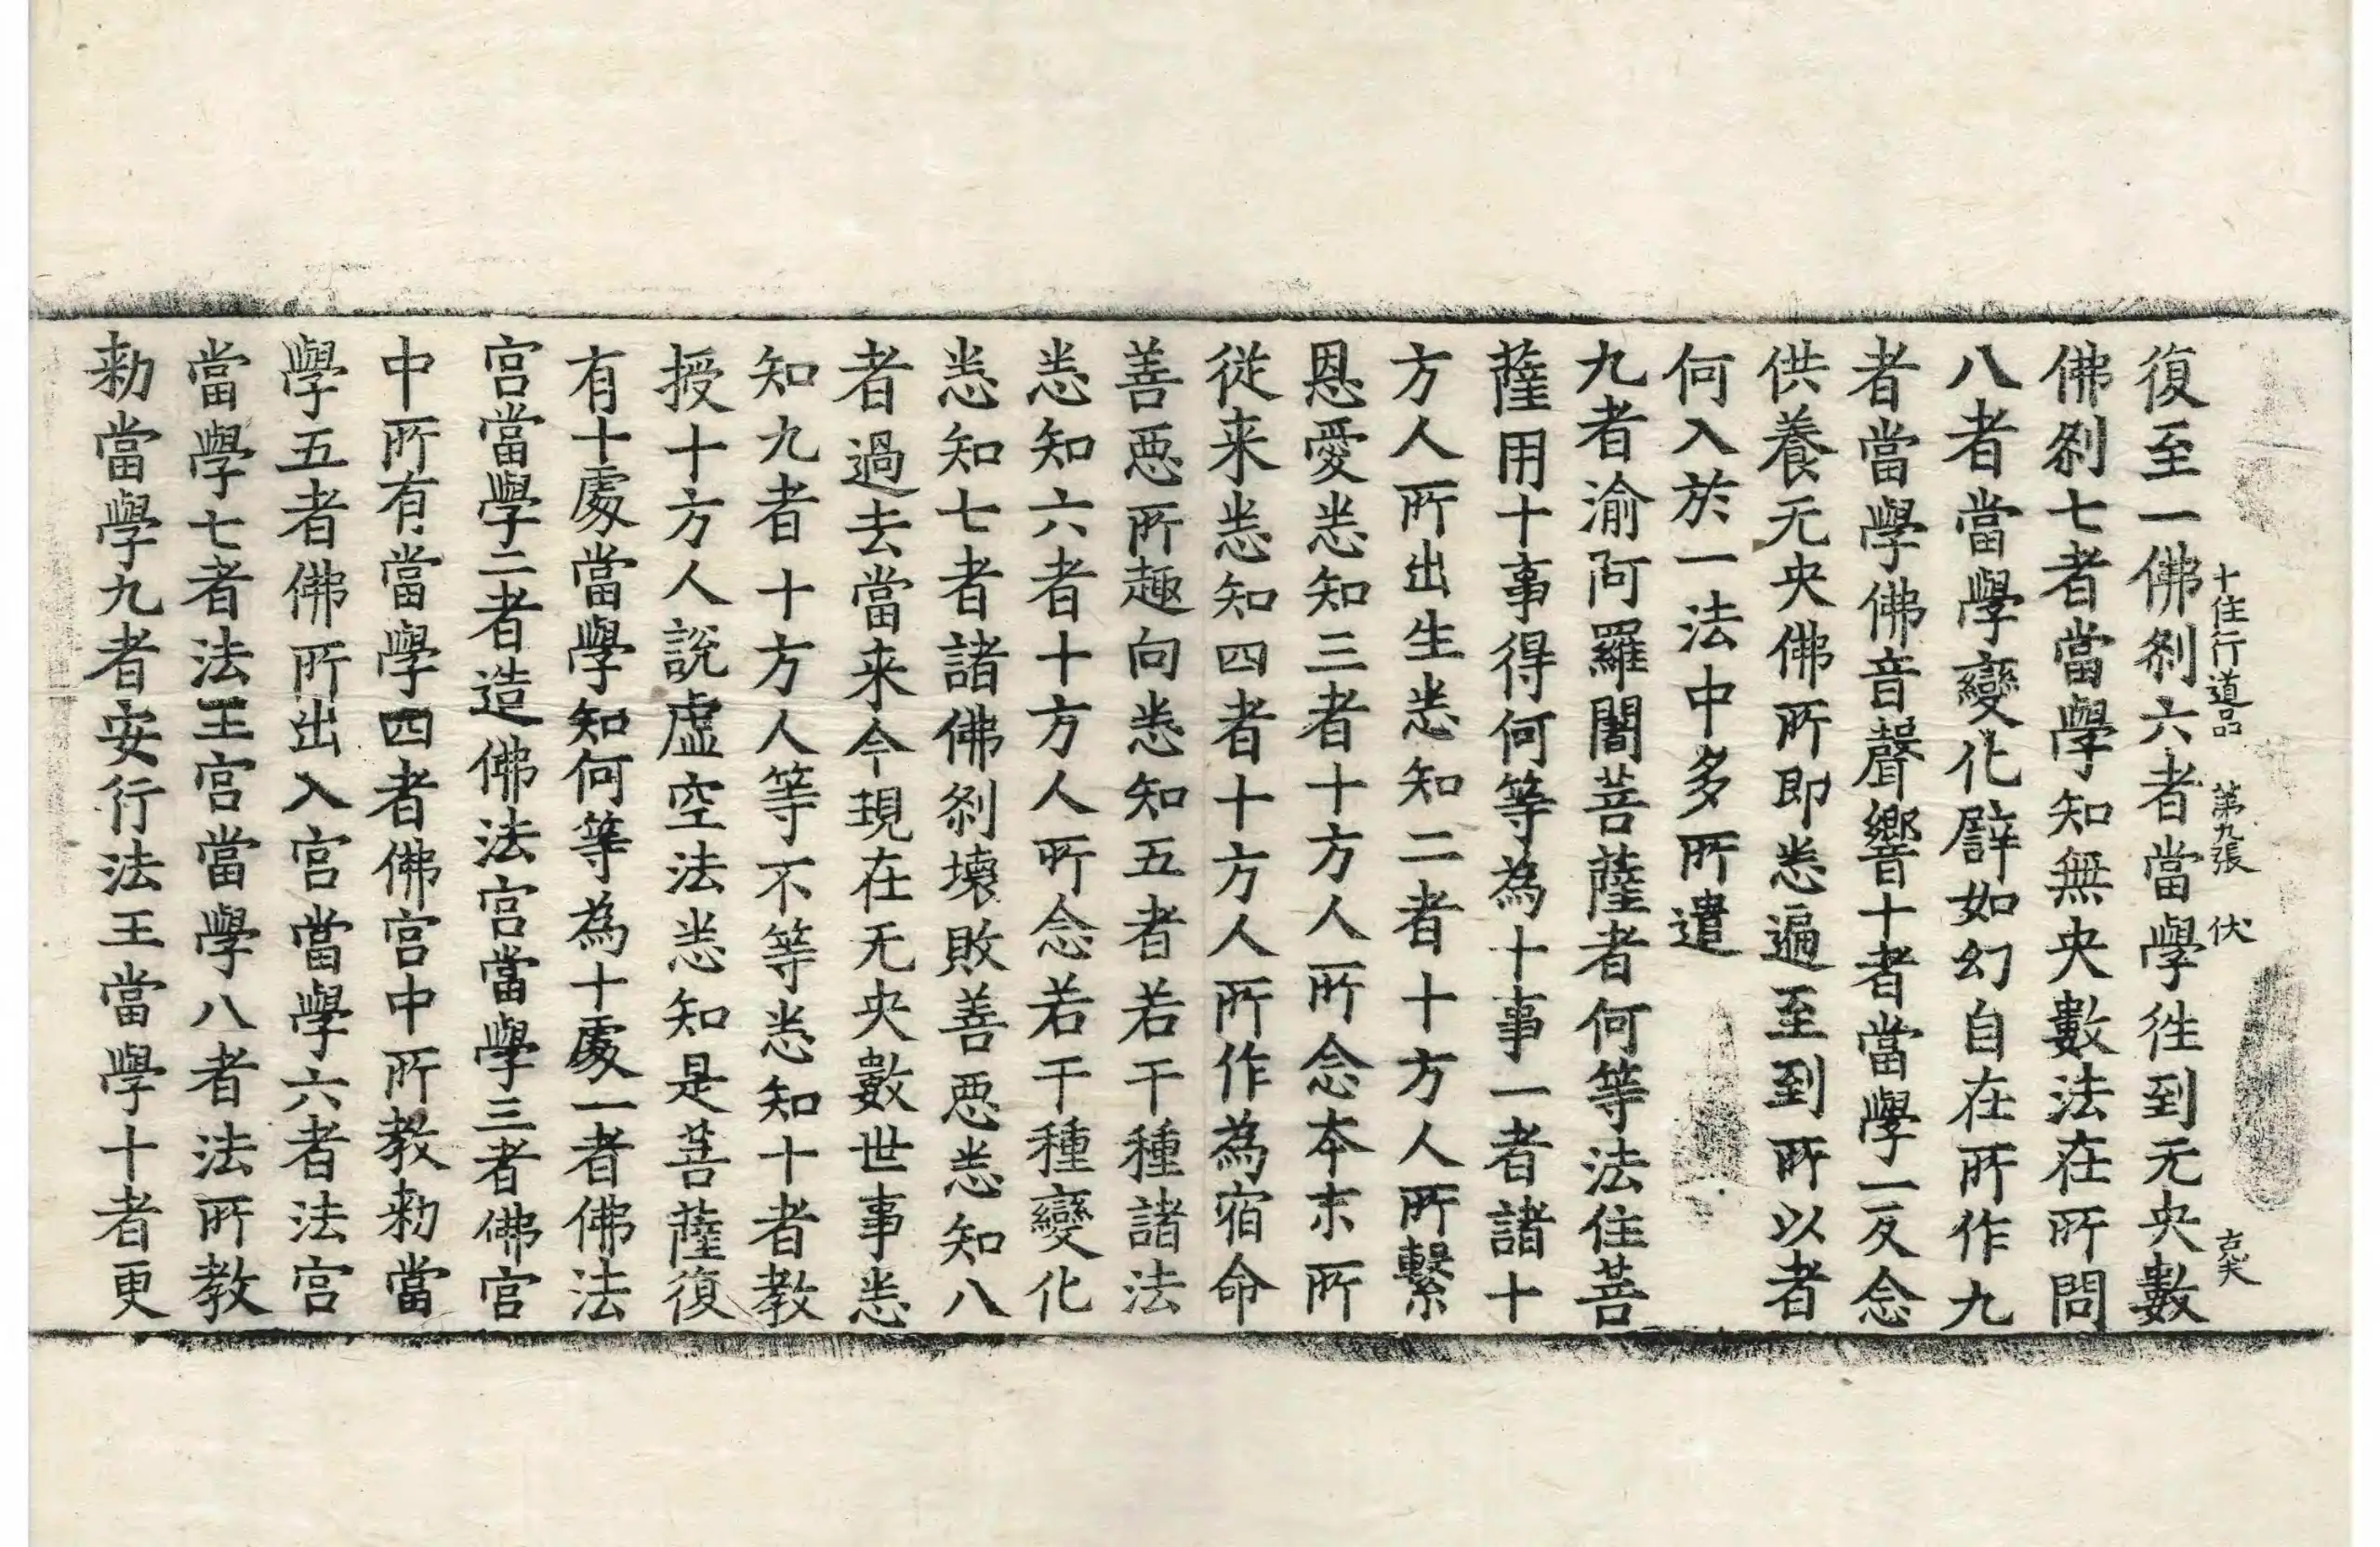 十住行道品 第九張 伏
復至一佛刹六者當學徃到无央數
佛刹七者當學知無央數法在所問
八者當學變化譬如幻自在所作九
者當學佛音聲響十者當學一反念
供養无央佛所即悉遍至到所以者
何入於一法中多所遣
九者渝阿羅闍菩薩者何等法住菩
薩用十事得何等為十事一者諸十
方人所出生悉知二者十方人所繫
恩愛悉知三者十方人所念本末所
從来悉知四者十方人所作為宿命
善惡所趣向悉知五者若干種諸法
悉知六者十方人所念若干種變化
悉知七者諸佛刹壞敗善惡悉知八
者過去當来今現在无央數世事悉
知九者十方人等不等悉知十者教
授十方人說虛空法悉知是菩薩復
有十處當學知何等為十處一者佛法
宮當學二者造佛法宮當學三者佛宮
中所有當學四者佛宮中所教勑當
學五者佛所出入宮當學六者法宮
當學七者法王宮當學八者法所教
勑當學九者安行法王當學十者更